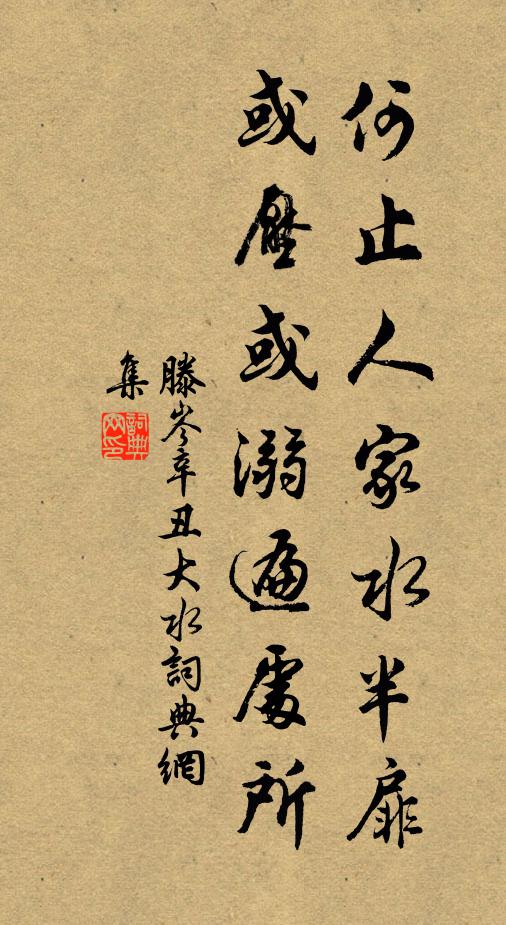 何止人家水半扉
或壓或溺遍處所
滕岑辛丑大水詞典網
集
詞典網印